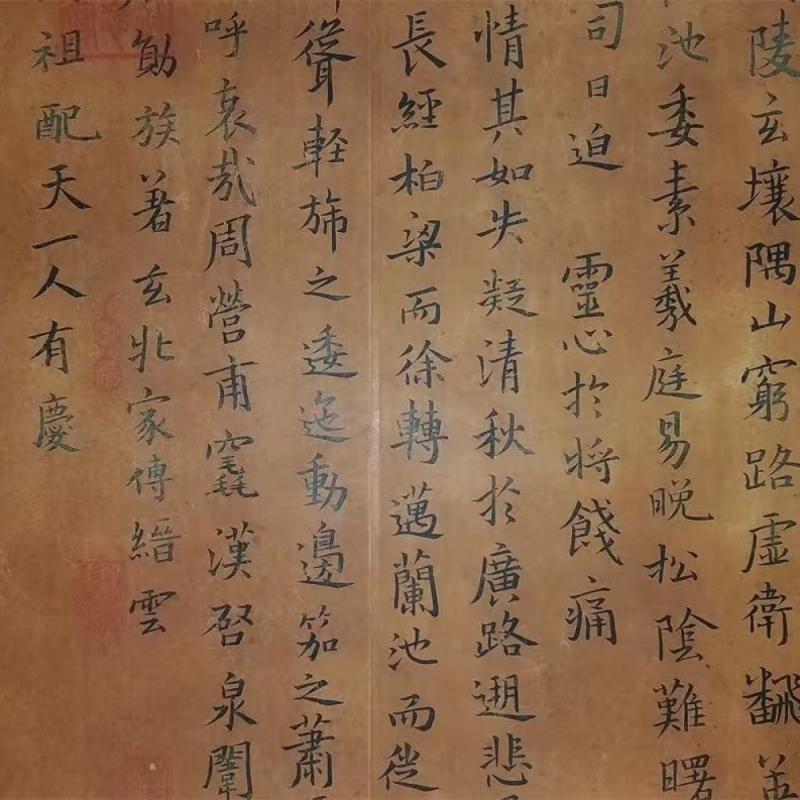 陵玄壤隅山窮路虛衛翻
池委素羲庭易晚松陰難曙
司日迫 靈心於將餞痛
情其如失凝清秋於廣路遡悲
長經柏梁而徐轉邁蘭池而從
聳輕旆之逶迤動邊笳之蕭
呼哀哉周營甫竁漢啓泉闈
勛族著玄北家傳縉雲
祖配天一人有慶